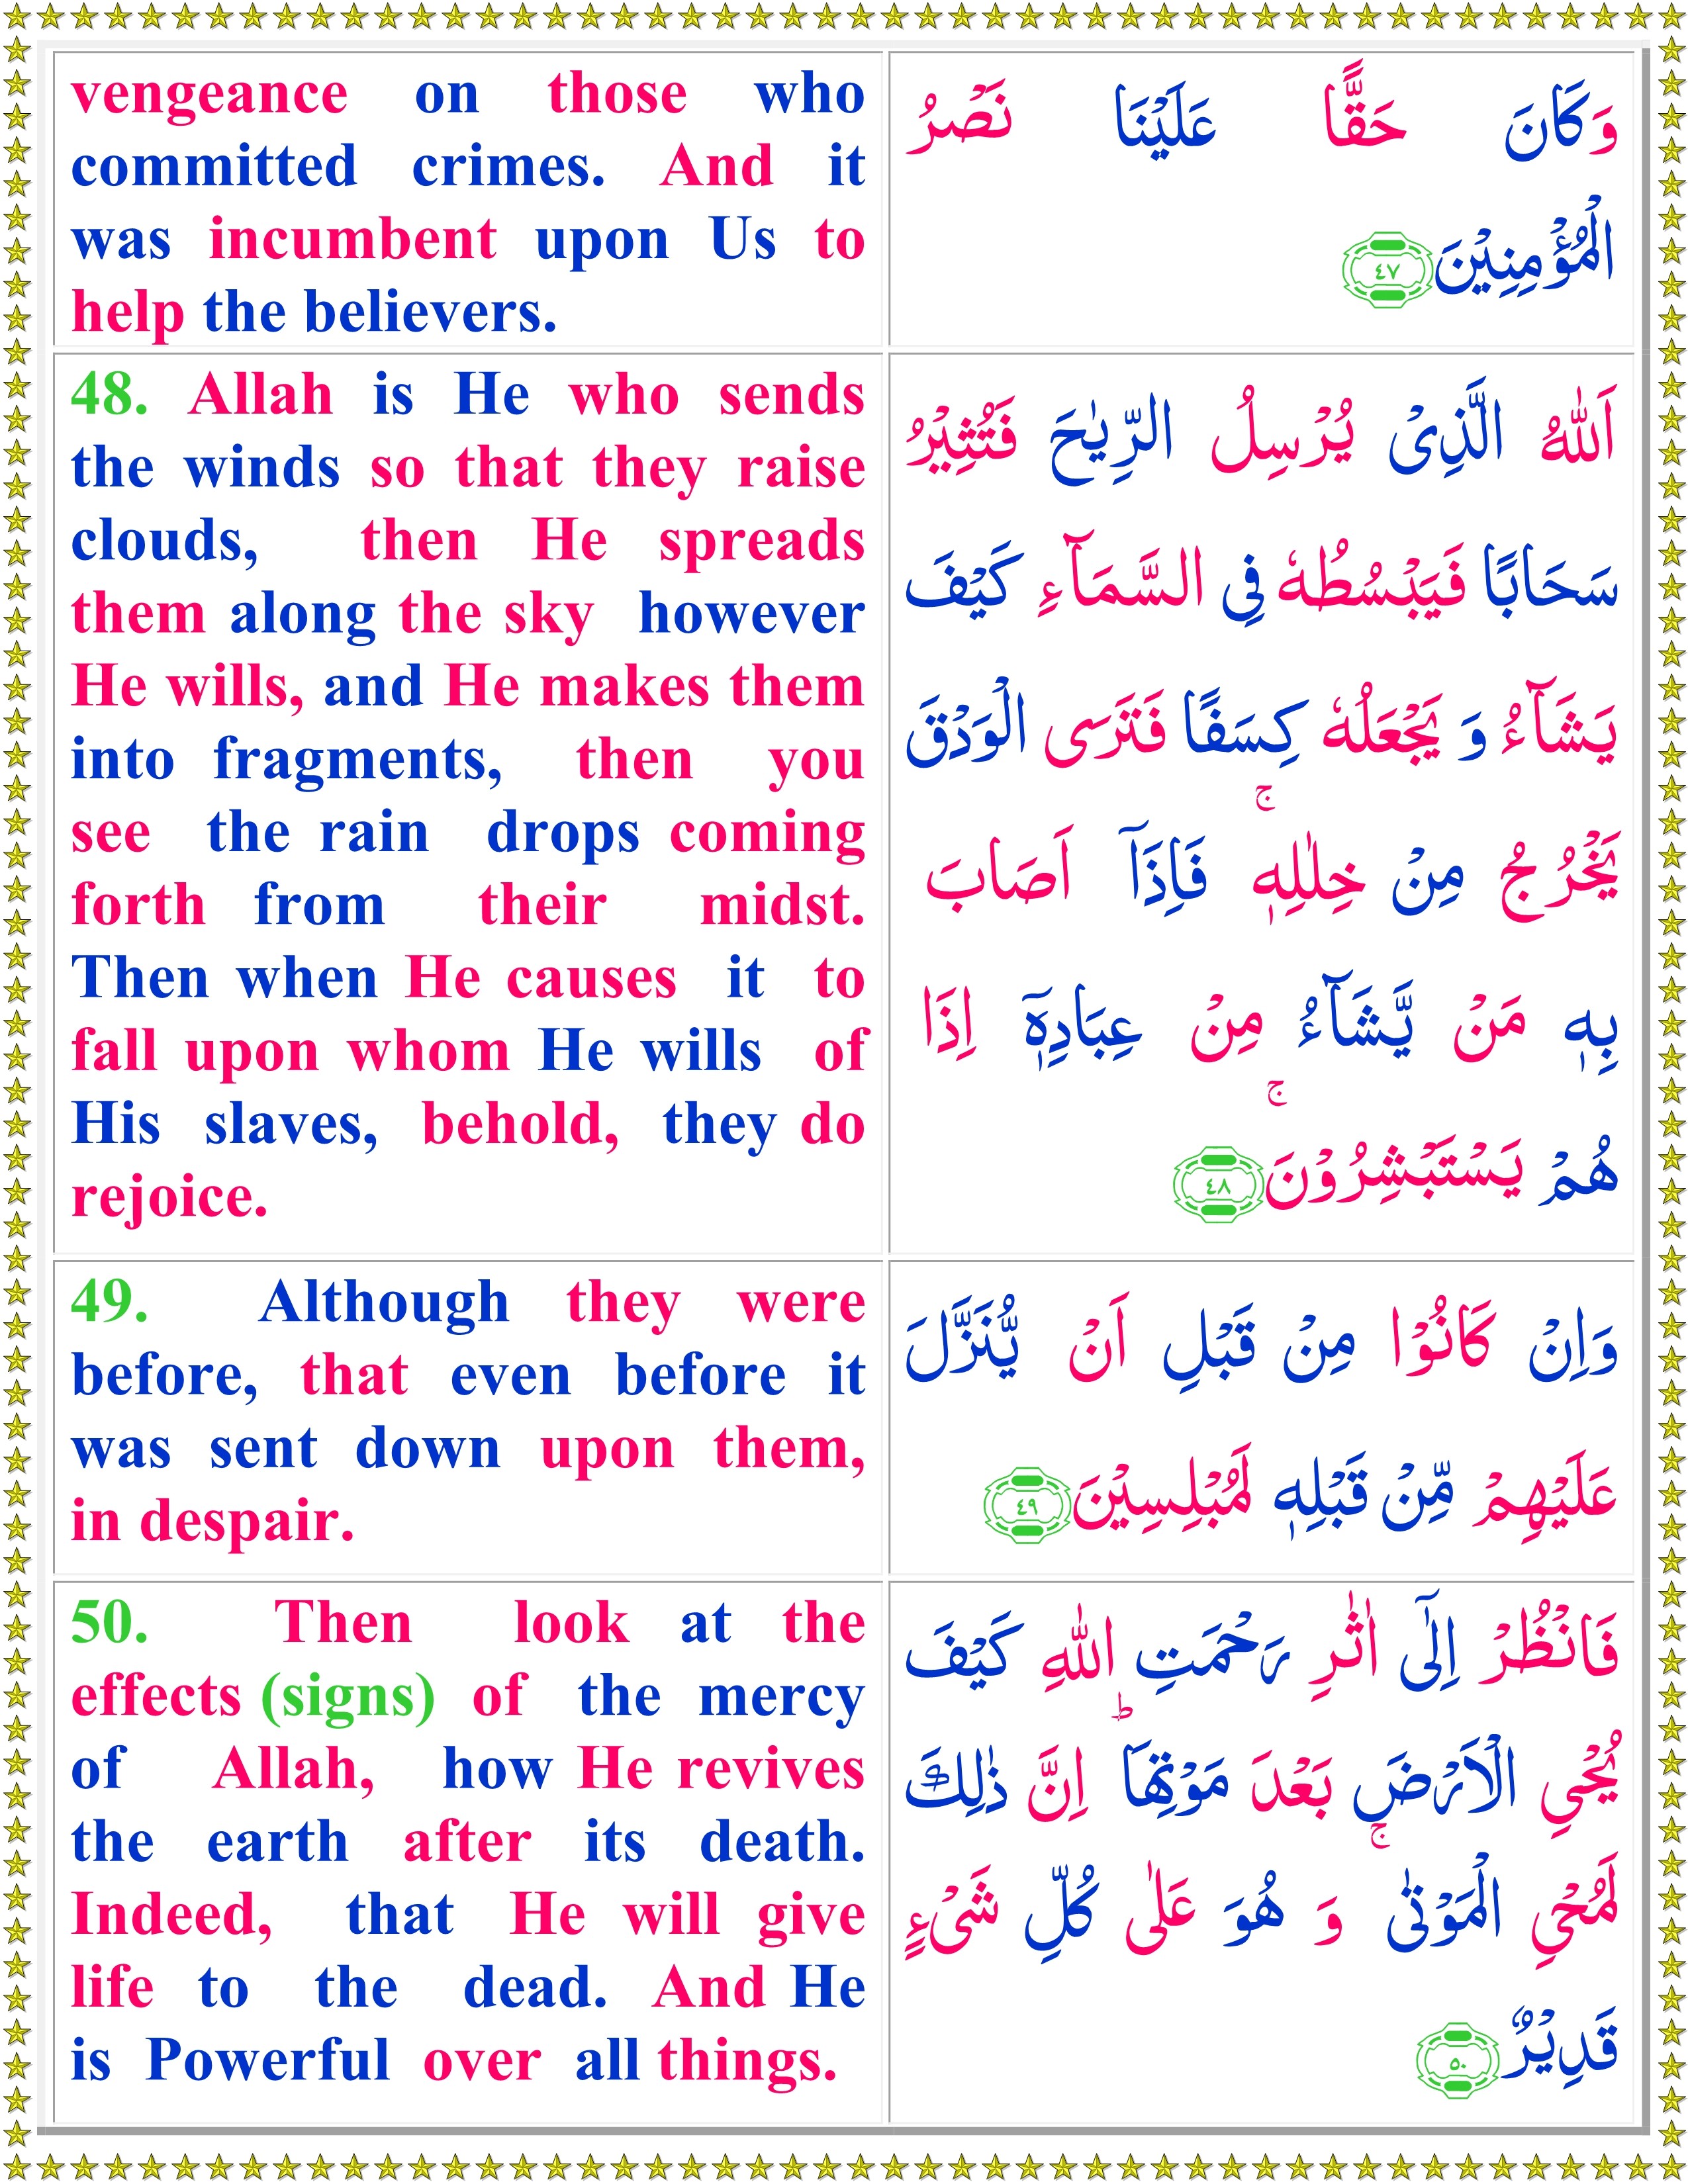 vengeance on those who
committed crimes. And it
was incumbent upon Us to
help the believers.
وَكَانَ حَقًّا عَلَيْنَا نَصْرُ
الْمُؤْمِنِيْنَ ٤٧
48. Allah is He who sends
the winds so that they raise
clouds, then He spreads
them along the sky however
He wills, and He makes them
into fragments, then you
see the rain drops coming
forth from their midst.
Then when He causes it to
fall upon whom He wills of
His slaves, behold, they do
rejoice.
اَللّٰهُ الَّذِىْ يُرْسِلُ الرِّيٰحَ فَتُثِيْرُ
سَحَابًا فَيَبْسُطُهٗ فِى السَّمَآءِ كَيْفَ
يَشَآءُ وَ يَجْعَلُهٗ كِسَفًا فَتَرَى الْوَدْقَ
يَخْرُجُ مِنْ خِلٰلِهٖ ۚ فَاِذَاۤ اَصَابَ
بِهٖ مَنْ يَّشَآءُ مِنْ عِبَادِهٖۤ اِذَا
هُمْ يَسْتَبْشِرُوْنَ ۚ ٤٨
49. Although they were
before, that even before it
was sent down upon them,
in despair.
وَاِنْ كَانُوْا مِنْ قَبْلِ اَنْ يُّنَزَّلَ
عَلَيْهِمْ مِّنْ قَبْلِهٖ لَمُبْلِسِيْنَ ٤٩
50. Then look at the
effects (signs) of the mercy
of Allah, how He revives
the earth after its death.
Indeed, that He will give
life to the dead. And He
is Powerful over all things.
فَانْظُرْ اِلٰٓى اٰثٰرِ رَحْمَتِ اللّٰهِ كَيْفَ
يُحْىِ الْاَرْضَ بَعْدَ مَوْتِهَا ؕ اِنَّ ذٰلِكَ
لَمُحْىِ الْمَوْتٰى ۚ وَ هُوَ عَلٰى كُلِّ شَىْءٍ
قَدِيْرٌ ٥٠